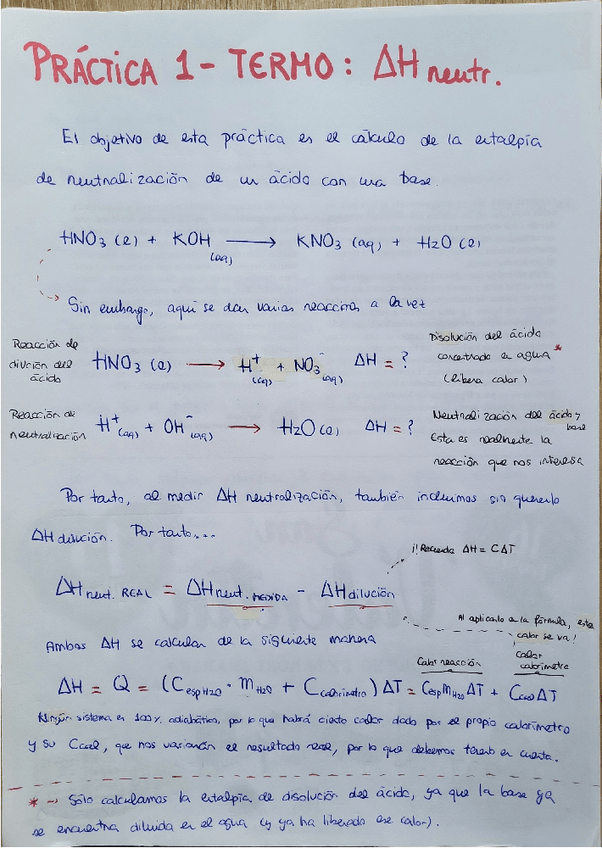 PRÁCTICA 1 - TERMO: ΔH neutr.
El objetivo de esta práctica es el cálculo de la entalpía
de neutralización de un ácido con una base.
HNO3 (l) + KOH (aq) → KNO3 (aq) + H2O (l)
Sin embargo, aquí se dan varias reacciones a la vez
Reacción de
dilución del
ácido
HNO3 (l) → H+ (aq) + NO3- (aq) ΔH = ?
Disolución del ácido
concentrado en agua *
(libera calor)
Reacción de
neutralización
H+ (aq) + OH- (aq) → H2O (l) ΔH = ?
Neutralización del ácido y base
Esta es realmente la
reacción que nos interesa
Por tanto, al medir ΔH neutralización, también incluimos sin quererlo
ΔH dilución. Por tanto...
¡! Recuerda ΔH = CΔT
ΔH neut. REAL = ΔH neut. MEDIDA - ΔH dilución
Al aplicarlo a la fórmula, este
calor se va!
Ambos ΔH se calculan de la siguiente manera
Calor reacción
calor
calorímetro
ΔH = Q = (Cesp H2O · mH2O + Ccalorímetro) ΔT = Cesp mH2O ΔT + Ccal ΔT
Ningún sistema es 100% adiabático, por lo que habrá cierto calor dado por el propio calorímetro
y su Ccal, que nos variarán el resultado real, por lo que debemos tenerlo en cuenta.
* → Sólo calculamos la entalpía de disolución del ácido, ya que la base ya
se encuentra diluida en el agua (y ya ha liberado ese calor).